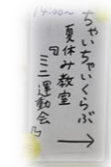 14:00〜
ちゃいちゃいくらぶ
夏休み教室
『ミニ運動会』